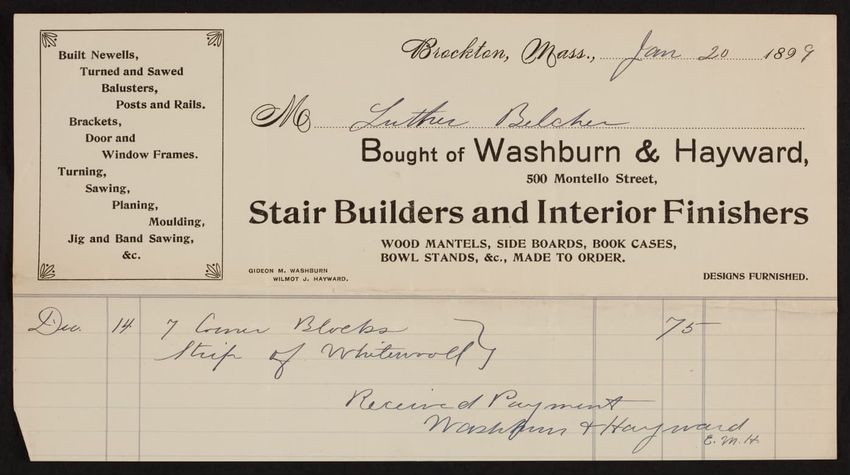 Built Newells,
Turned and Sawed
Balusters,
Posts and Rails.
Brackets,
Door and
Window Frames.
Turning,
Sawing,
Planing,
Moulding,
Jig and Band Sawing,
&c.
Brockton, Mass., Jan 20 1899
M Luther Belcher
Bought of Washburn & Hayward,
500 Montello Street,
Stair Builders and Interior Finishers
WOOD MANTELS, SIDE BOARDS, BOOK CASES,
BOWL STANDS, &c., MADE TO ORDER.
GIDEON M. WASHBURN
WILMOT J. HAYWARD.
DESIGNS FURNISHED.
Dec. 14 7 Corner Blocks 75
Strip of
Received Payment
Washburn & Hayward
E. M. H